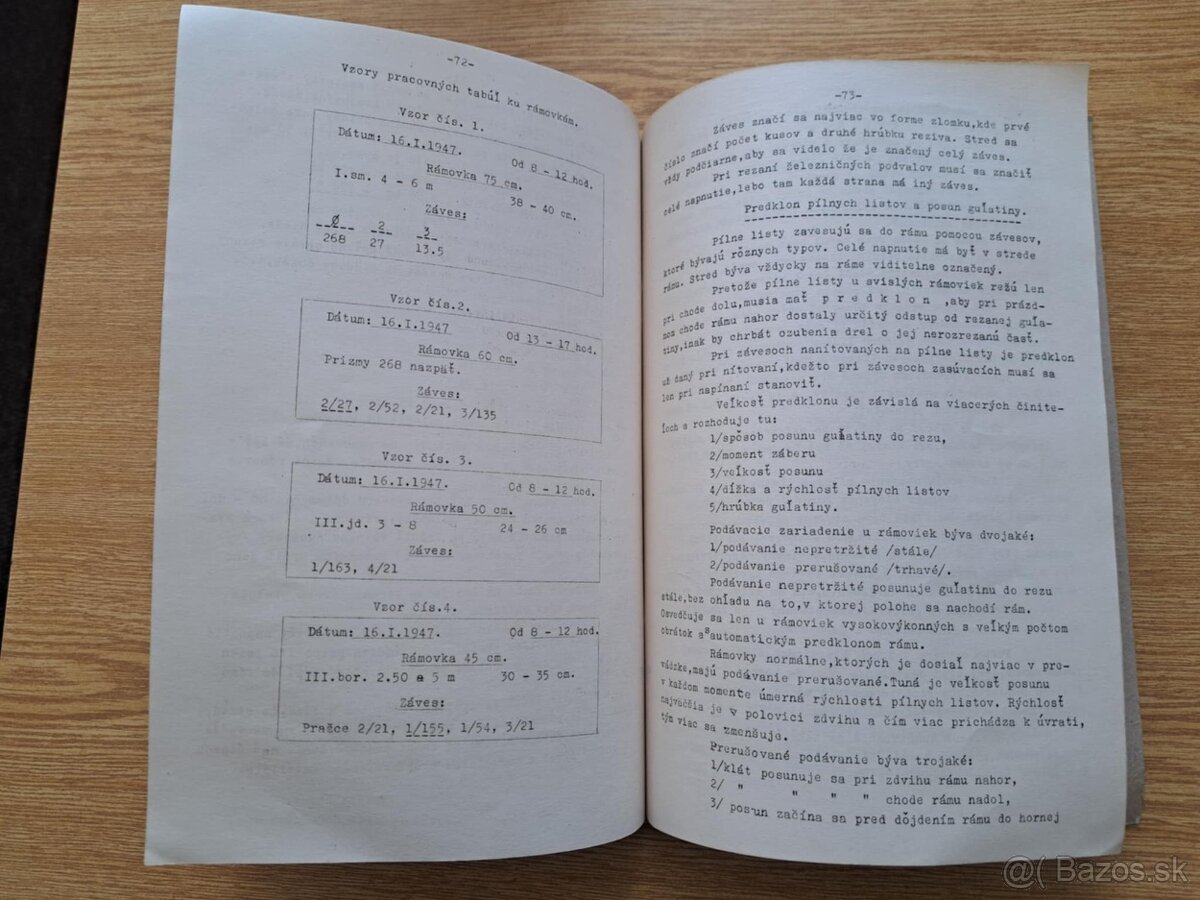 -72-
Vzory pracovných tabúľ ku rámovkám.
Vzor čís. 1.
Dátum: 16.I.1947. Od 8 - 12 hod.
Rámovka 75 cm.
I.sm. 4 - 6 m 38 - 40 cm.
Záves:
Ø 2 3
268 27 13.5
Vzor čís.2.
Dátum: 16.I.1947 Od 13 - 17 hod.
Rámovka 60 cm.
Prizmy 268 nazpäť.
Záves:
2/27, 2/52, 2/21, 3/135
Vzor čís. 3.
Dátum: 16.I.1947. Od 8 - 12 hod.
Rámovka 50 cm.
III.jd. 3 - 8 24 - 26 cm
Záves:
1/163, 4/21
Vzor čís.4.
Dátum: 16.I.1947. Od 8 - 12 hod.
Rámovka 45 cm.
III.bor. 2.50 a 5 m 30 - 35 cm.
Záves:
Pražce 2/21, 1/155, 1/54, 3/21
-73-
Záves značí sa najviac vo forme zlomku,kde prvé
číslo značí počet kusov a druhé hrúbku reziva. Stred sa
vždy podčiarne,aby sa videlo že je značený celý záves.
Pri rezaní železničných podvalov musí sa značiť
celé napnutie,lebo tam každá strana má iný záves.
Predklon pílnych listov a posun guľatiny.
Pílne listy zavesujú sa do rámu pomocou závesov,
ktoré bývajú rôznych typov. Celé napnutie má byť v strede
rámu. Stred býva vždycky na ráme viditelne označený.
Pretože pílne listy u svislých rámoviek režú len
pri chode dolu,musia mať p r e d k l o n ,aby pri prázd-
nom chode rámu nahor dostaly určitý odstup od rezanej guľa-
tiny,inak by chrbát ozubenia drel o jej nerozrezanú časť.
Pri závesoch nanitovaných na pílne listy je predklon
už daný pri nítovaní,kdežto pri závesoch zasúvacích musí sa
len pri napínaní stanoviť.
Veľkosť predklonu je závislá na viacerých činite-
ľoch a rozhoduje tu:
1/spôsob posunu guľatiny do rezu,
2/moment záberu
3/veľkosť posunu
4/dížka a rýchlosť pílnych listov
5/hrúbka guľatiny.
Podávacie zariadenie u rámoviek býva dvojaké:
1/podávanie nepretržité /stále/
2/podávanie prerušované /trhavé/.
Podávanie nepretržité posunuje guľatinu do rezu
stále,bez ohľadu na to,v ktorej polohe sa nachodí rám.
Osvedčuje sa len u rámoviek vysokovýkonných s veľkým počtom
obrátok a s automatickým predklonom rámu.
Rámovky normálne,ktorých je dosiaľ najviac v pre-
vádzke,majú podávanie prerušované.Tuná je veľkosť posunu
v každom momente úmerná rýchlosti pílnych listov. Rýchlosť
najväčšia je v polovici zdvihu a čím viac prichádza k úvrati,
tým viac sa zmenšuje.
Prerušované podávanie býva trojaké:
1/klát posunuje sa pri zdvihu rámu nahor,
2/ " " " " chode rámu nadol,
3/ posun začína sa pred dôjdením rámu do hornej
@( Bazos.sk